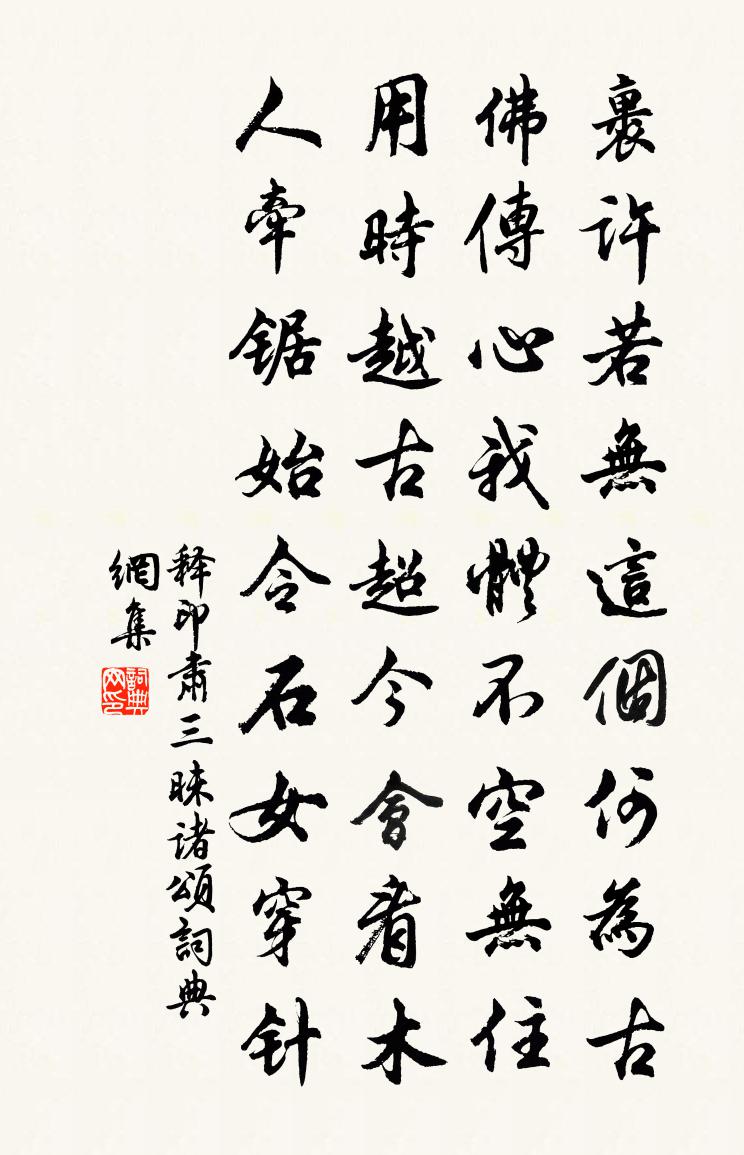 裹許若無這個何為古
佛傳心我體不空無住
用時越古超今會看木
人牽锯始令石女穿针
释印肃三昧诸頌詞典
網集
詞典網印